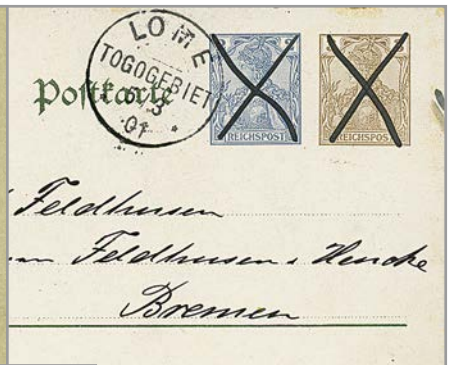 LOME
TOGOGEBIET
6/3
01
Postkarte
REICHSPOST REICHSPOST
Feldhusen
Feldhusen & Hencke
Bremen